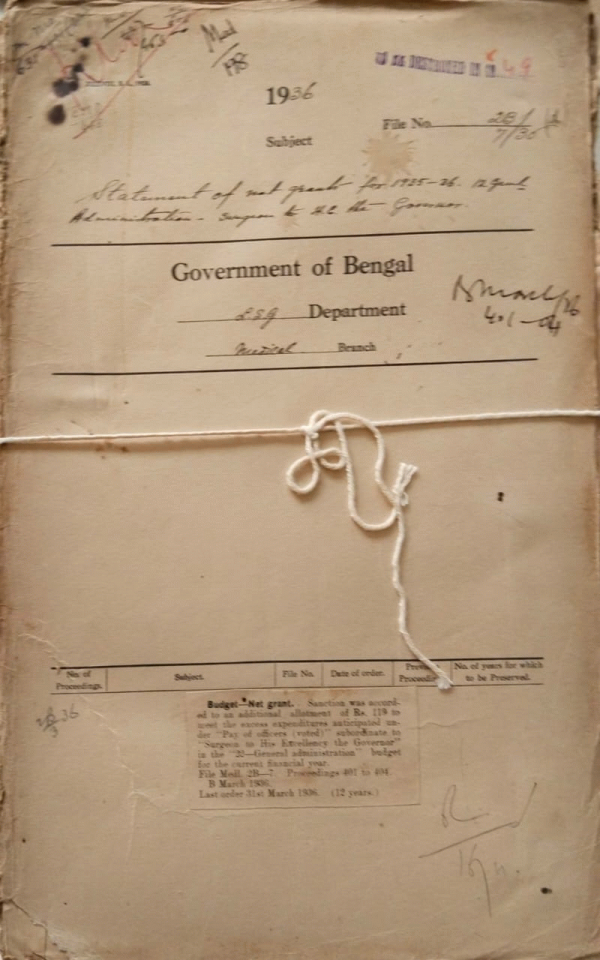 Med
1936
Subject
File No. 2B1
7/36
Statement of net grant for 1935-26. 22 Genl
Administration - Surgeon to H.E. the Governor.
Government of Bengal
LSG Department
Medical Branch
401-04
No. of Proceedings.
Subject.
File No.
Date of order.
No. of years for which to be Preserved.
Budget—Net grant. Sanction was accord-
ed to an additional allotment of Rs. 119 to
meet the excess expenditures anticipated un-
der "Pay of officers (voted)" subordinate to
"Surgeon to His Excellency the Governor"
in the "22—General administration" budget
for the current financial year.
File Medl. 2B—7. Proceedings 401 to 404.
B March 1936.
Last order 31st March 1936. (12 years.)